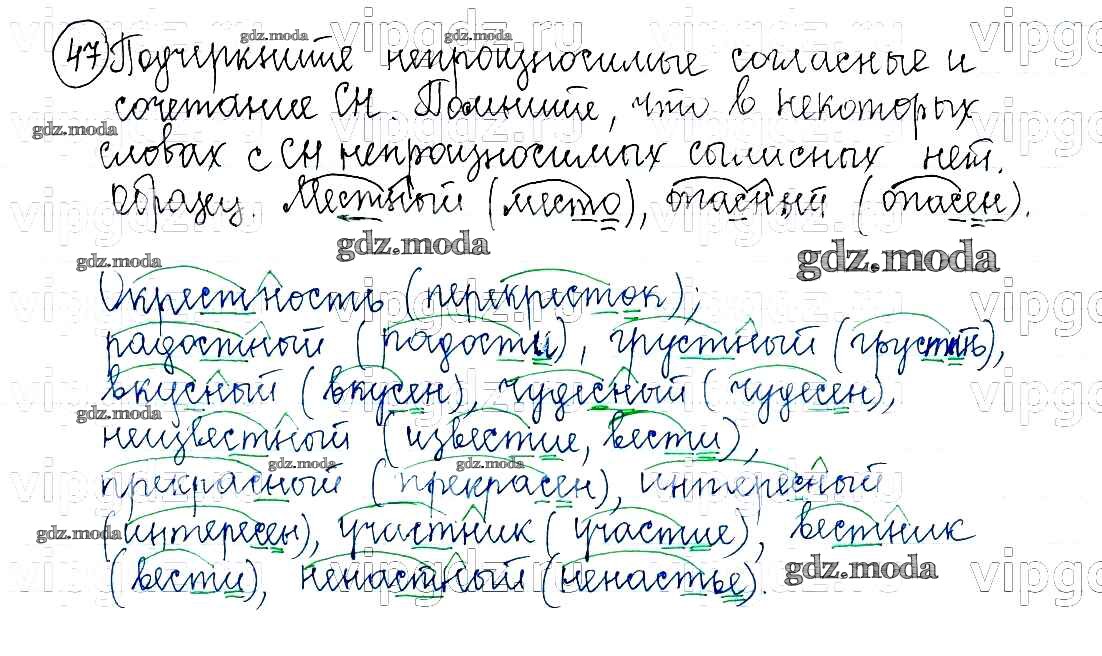 47 Подчеркните непроизносимые согласные и
сочетание СН. Помните, что в некоторых
словах с СН непроизносимых сгласных нет.
Образец. Местный (место), опасный (опасен).
Окрестность (перекресток);
радостный (радости), грустный (грустить),
вкусный (вкусен), чудесный (чудесен),
неизвестный (известие, вести),
прекрасный (прекрасен), интересный
(интересен), участник (участие), вестник
(вести), ненастный (ненастье).
gdz.moda
vipgdz.ru